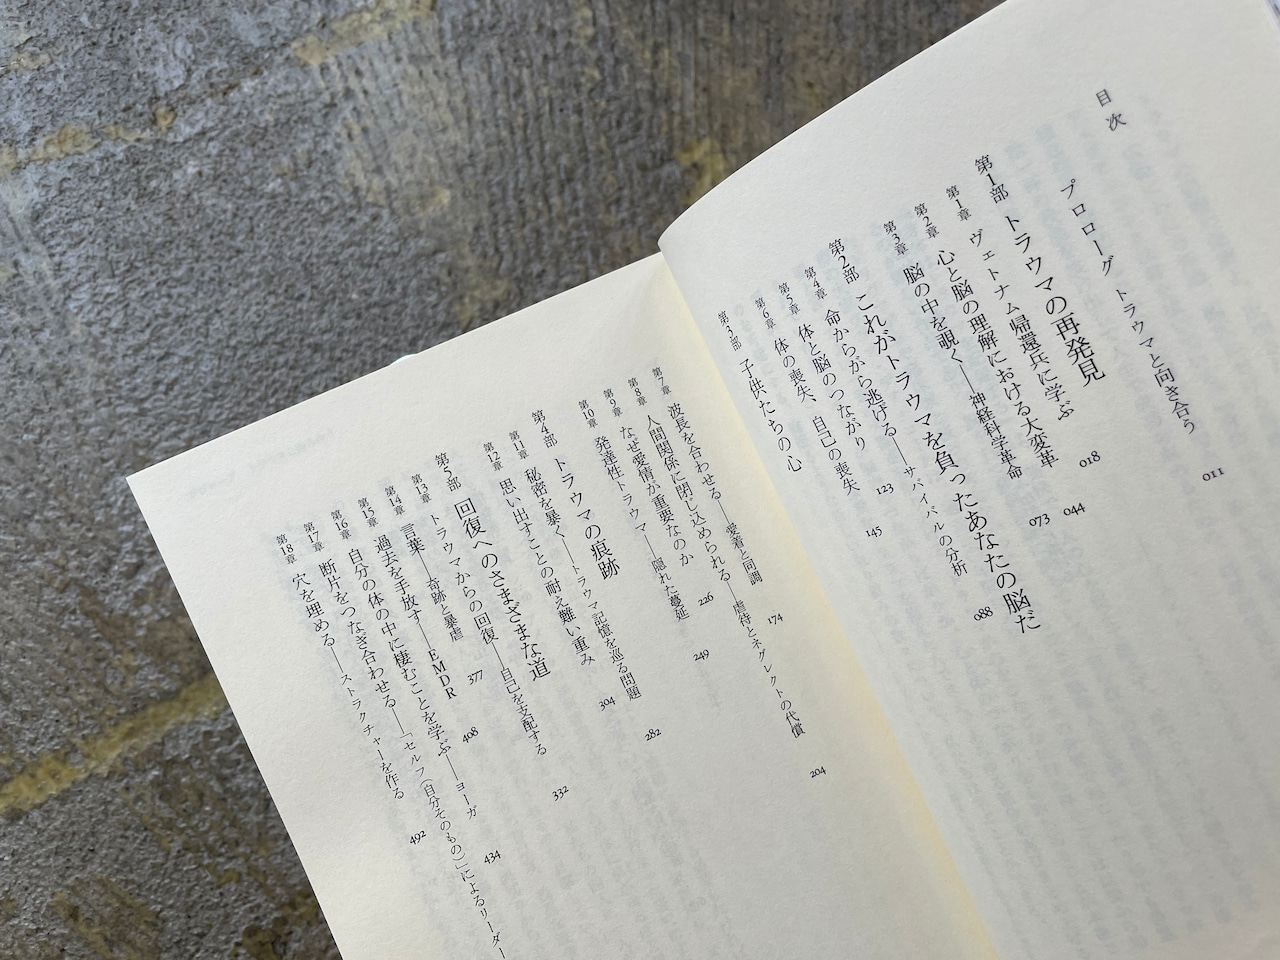 目次
プロローグ トラウマと向き合う 011
第1部 トラウマの再発見
第1章 ヴェトナム帰還兵に学ぶ 018
第2章 心と脳の理解における大変革 044
第3章 脳の中を覗く——神経科学革命 073
第2部 これがトラウマを負ったあなたの脳だ
第4章 命からがら逃げる——サバイバルの分析 088
第5章 体と脳のつながり 123
第6章 体の喪失、自己の喪失 145
第3部 子供たちの心
第7章 波長を合わせる——愛着と同調 174
第8章 人間関係に閉じ込められる——虐待とネグレクトの代償 204
第9章 なぜ愛情が重要なのか 226
第10章 発達性トラウマ——隠れた蔓延 249
第4部 トラウマの痕跡
第11章 秘密を暴く——トラウマ記憶を巡る問題 282
第12章 思い出すことの耐え難い重み 304
第5部 回復へのさまざまな道
第13章 トラウマからの回復——自己を支配する 332
第14章 言葉——奇跡と暴虐 377
第15章 過去を手放す——EMDR 408
第16章 自分の体の中に棲むことを学ぶ——ヨーガ 434
第17章 断片をつなぎ合わせる——「セルフ(自分そのもの)」によるリーダー
第18章 穴を埋める——ストラクチャーを作る 492